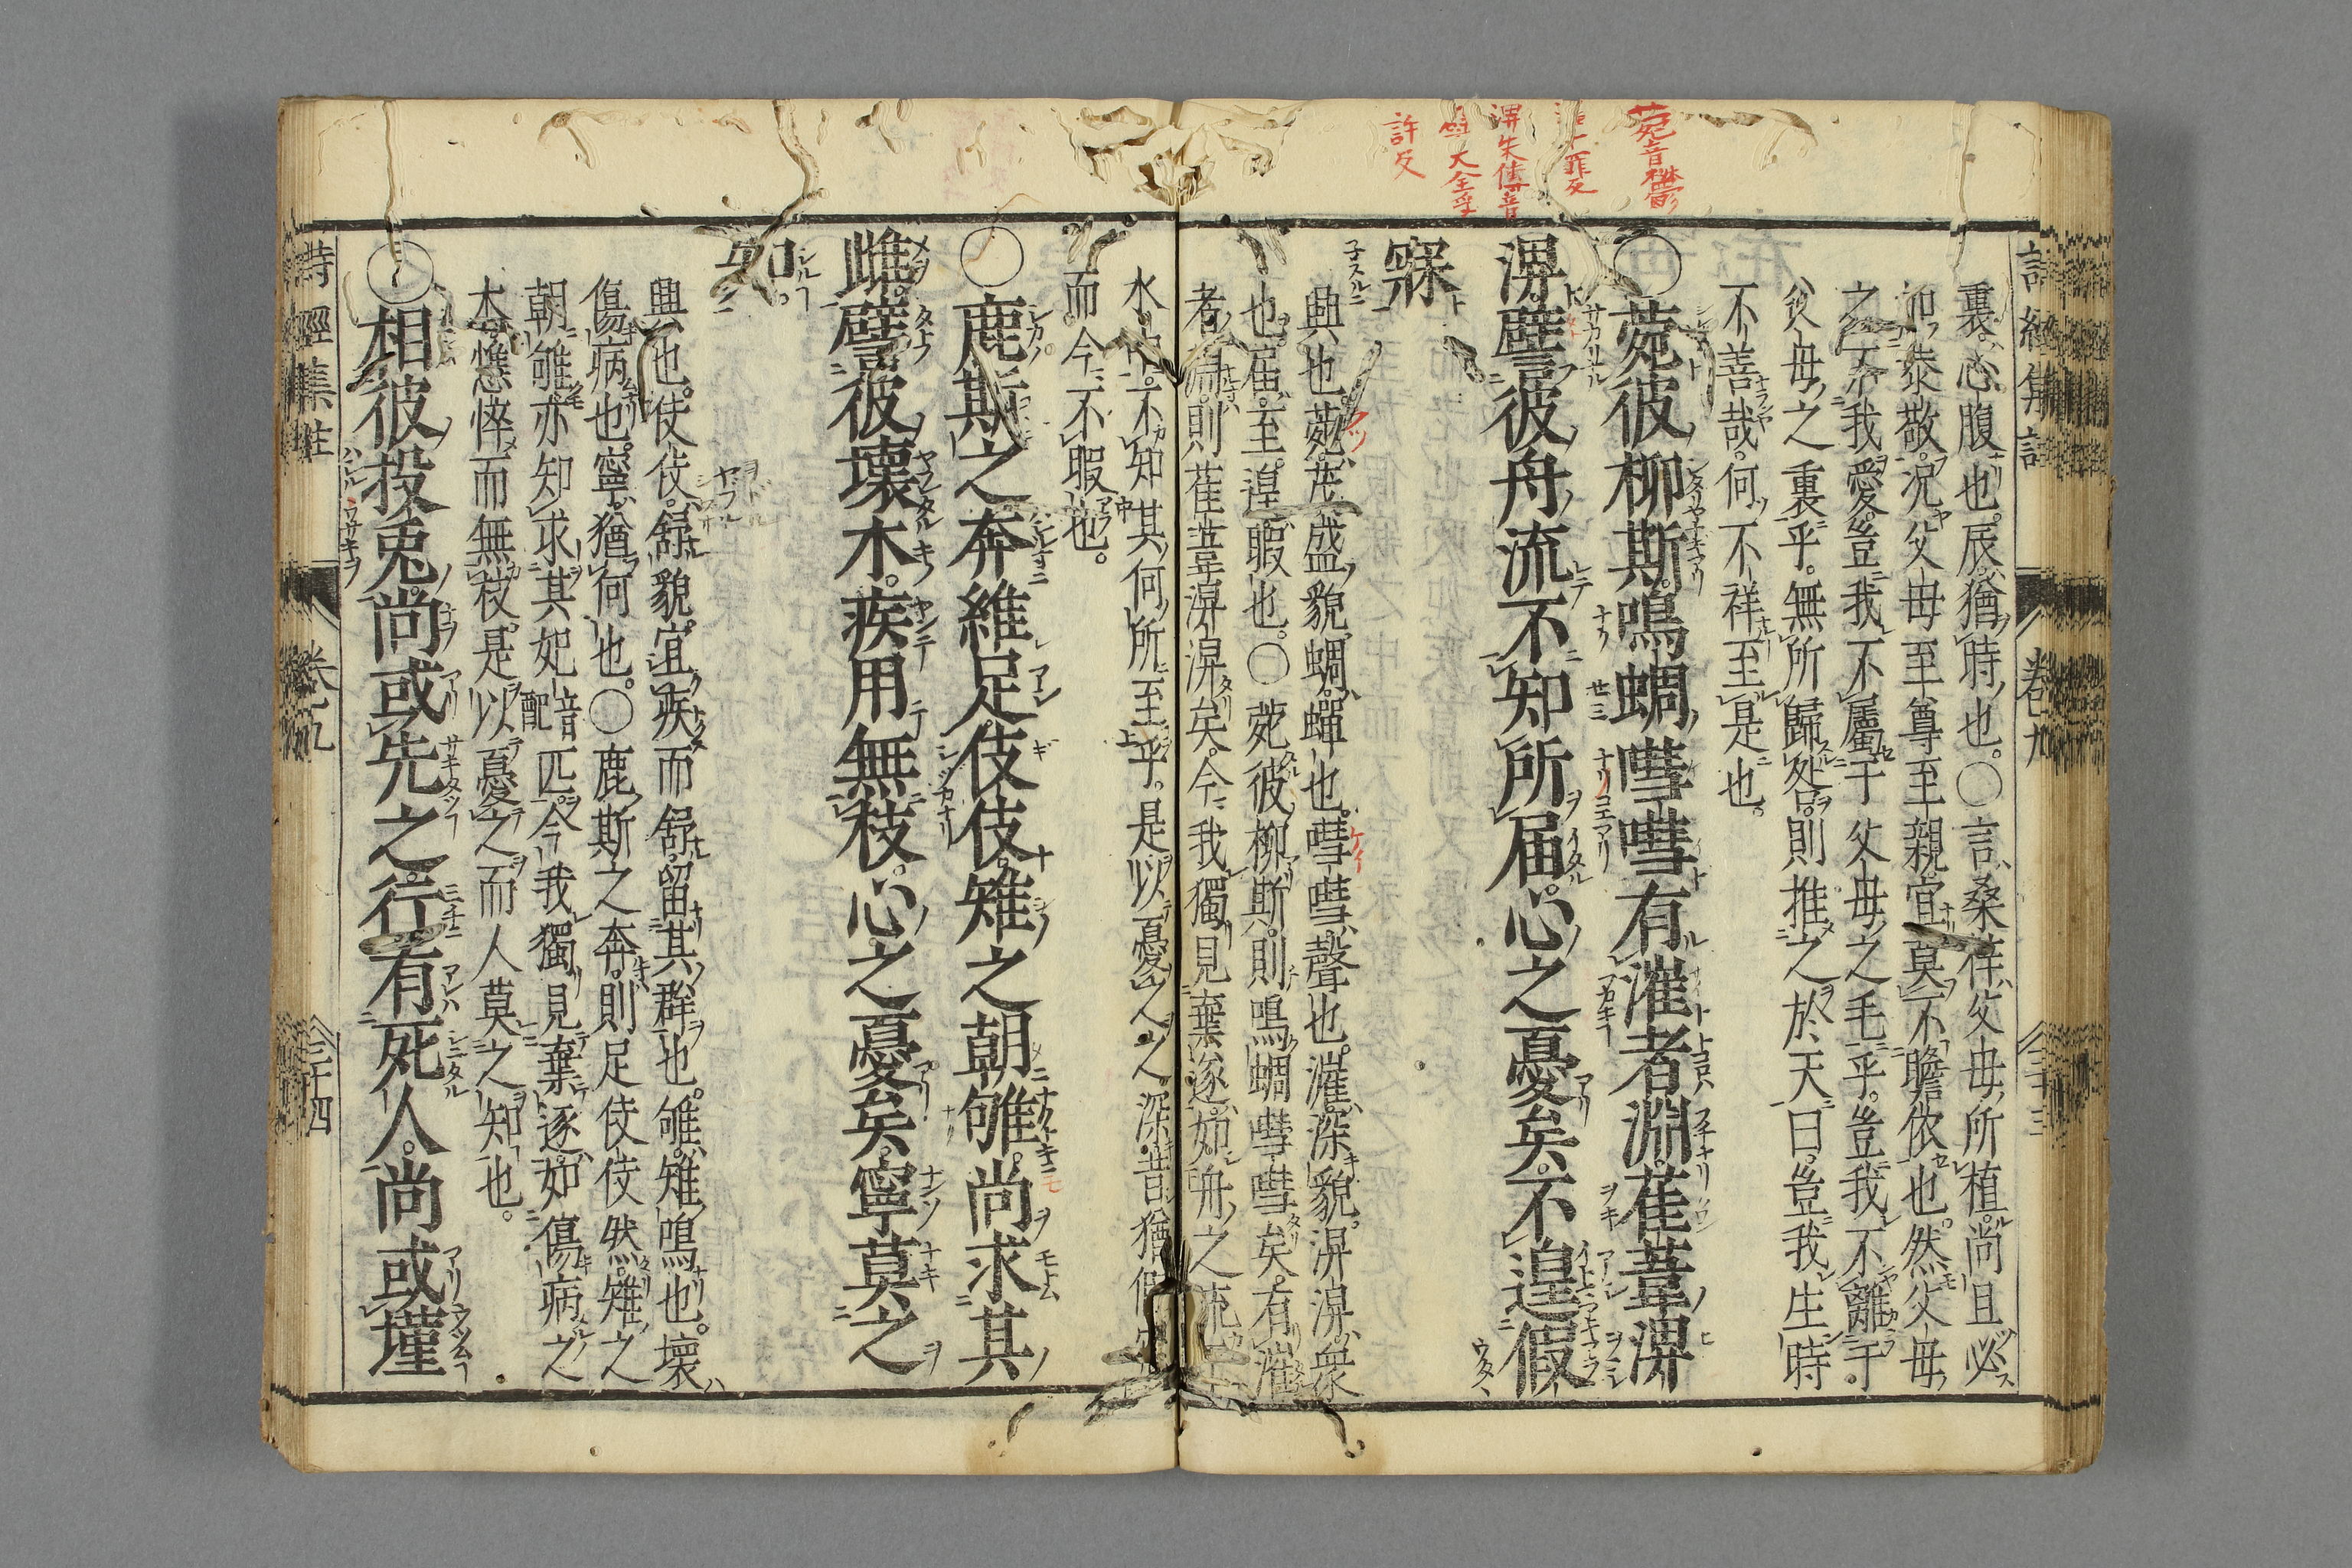 菀音鬱
淠朱傳音
嘒大全乎
許反
裏心腹也。辰猶時也。○言桑梓父母所植尚且必
加恭敬。況父母至尊至親宜莫不瞻依也。然父母
之不我愛。豈我不屬于父母之毛乎。豈我不離于
父母之裏乎。無所歸咎。則推之於天曰。豈我生時
不善哉。何不祥至是也。
○菀彼柳斯。鳴蜩嘒嘒。有漼者淵。萑葦淠
淠。譬彼舟流。不知所届。心之憂矣。不遑假
寐
興也。菀茂盛貌。蜩蟬也。嘒嘒聲也。漼深貌。淠淠衆
也。届至。遑暇也。○菀彼柳斯。則鳴蜩嘒嘒矣。有漼
者淵。則萑葦淠淠矣。今我獨見棄逐。如舟之流
水中。不知其何所至乎。是以憂之之深。昔猶假
而。今不暇也。
○鹿斯之奔。維足伎伎。雉之朝雊。尚求其
雌。譬彼壊木。疾用無枝。心之憂矣。寧莫之
知。
興也。伎伎。舒貌。宜疾而舒。留其群也。雊雉鳴也。壊
傷病也。寧猶何也。○鹿斯之奔。則足伎伎然。雉之
朝雊。亦知求其妃音配匹。今我獨見棄逐。如傷病之
木。憔悴而無枝。是以憂之而人莫之知也。
○相彼投兎。尚或先之。行有死人。尚或墐
詩經集註
卷九
三十三
詩經集註
卷九
三十四